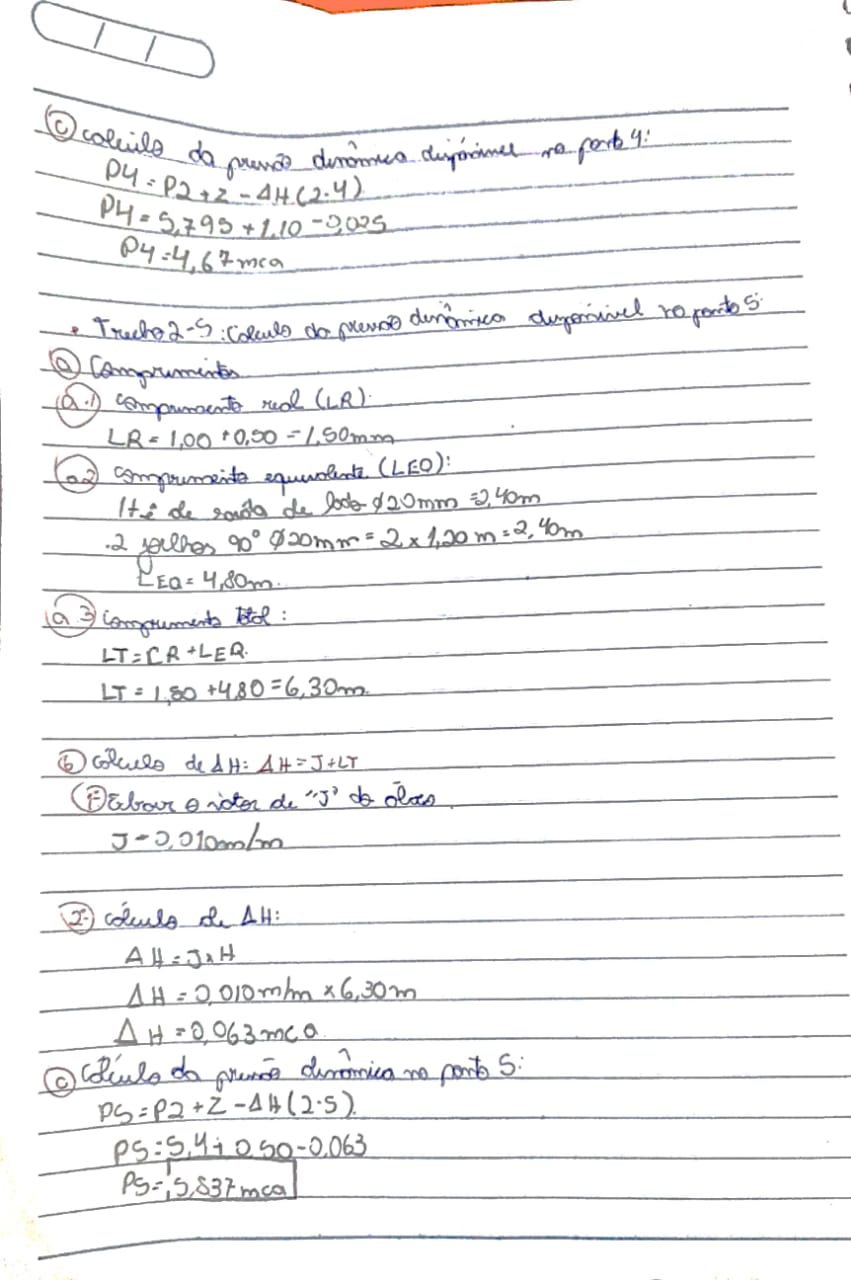 c) Cálculo da pressão dinâmica disponível no ponto 4:
P4 = P2 + Z - ΔH (2-4)
P4 = 5,795 + 1,10 - 0,025
P4 = 4,67 mca
• Trecho 2-5: Cálculo da pressão dinâmica disponível no ponto 5:
a) Comprimentos
a.1) comprimento real (LR):
LR = 1,00 + 0,50 = 1,50mm
a.2) comprimento equivalente (LEQ):
1 tê de saída de lado Ø20mm = 2,40m
.2 joelhos 90° Ø20mm = 2 x 1,20 m = 2,40m
LEQ = 4,80m.
a.3) comprimento total:
LT = LR + LEQ.
LT = 1,50 + 4,80 = 6,30m.
b) Cálculo de ΔH: ΔH = J+LT
1-) o valor de "J" do ábaco.
J = 0,010m/m
2-) cálculo de ΔH:
ΔH = JxH
ΔH = 0,010m/m x 6,30m
ΔH = 0,063 mca.
c) Cálculo da pressão dinâmica no ponto 5:
P5 = P2 + Z - ΔH (2-5).
P5 = 5,4 + 0,50 - 0,063
P5 = 5,837 mca